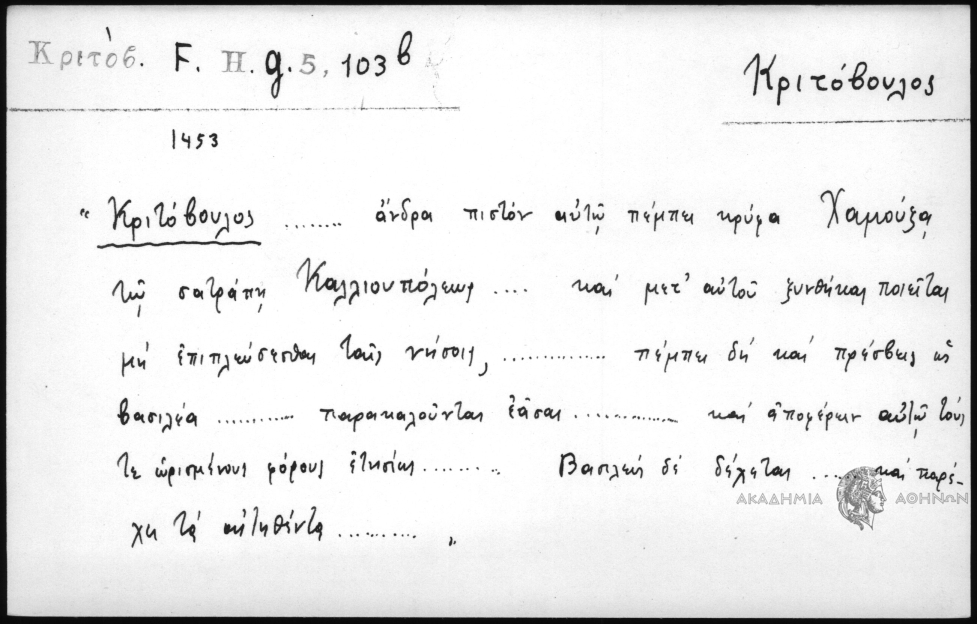 Κριτόβ. F. H. g. 5, 103 b
Κριτόβουλος
1453
“ Κριτόβουλος ........ ἄνδρα πιστόν αὐτῷ πέμπει κρύφα Χαμούζᾳ
τῷ σατράπῃ Καλλιουπόλεως .... καί μετ' αὐτοῦ ξυνθήκας ποιεῖται
μή ἐπιπλεύσεσθαι ταῖς νήσοις, .............. πέμπει δή καί πρέσβεις ὡς
βασιλέα ........... παρακαλοῦντας ἐᾶσαι .............. καί ἀποφέρειν αὐτῷ τούς
τε ὡρισμένους φόρους ἐτησίως .......... Βασιλεύς δέ δέχεται ...... καί παρέ-
χει τά αἰτηθέντα .......... „
ΑΚΑΔΗΜΙΑ ΑΘΗΝΩΝ